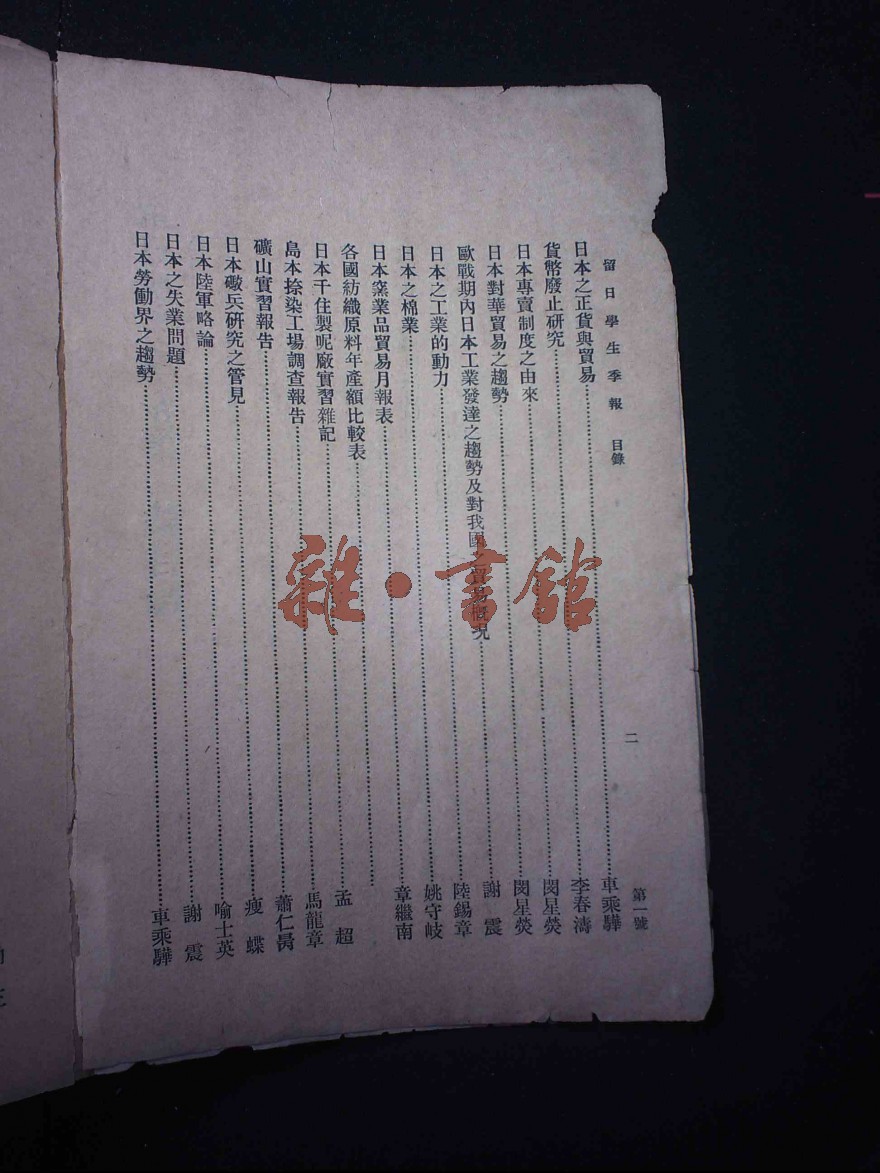 留日學生季報 目錄 二 第一號
日本之正貨與貿易……車乘驊
貨幣廢止研究……李春濤
日本專賣制度之由來……閔星熒
日本對華貿易之趨勢……閔星熒
歐戰期內日本工業發達之趨勢及對我國之貿易概況……謝震
日本之工業的動力……陸錫章
日本之棉業……姚守岐
日本窯業品貿易月報表……章繼南
各國紡織原料年產額比較表……
日本千住製呢廠實習雜記……孟超
島本捺染工場調查報告……馬龍章
礦山實習報告……蕭仁暠
日本礮兵研究之管見……瘦蝶
日本陸軍略論……喻士英
日本之失業問題……謝震
日本勞働界之趨勢……車乘驊
雜·書館